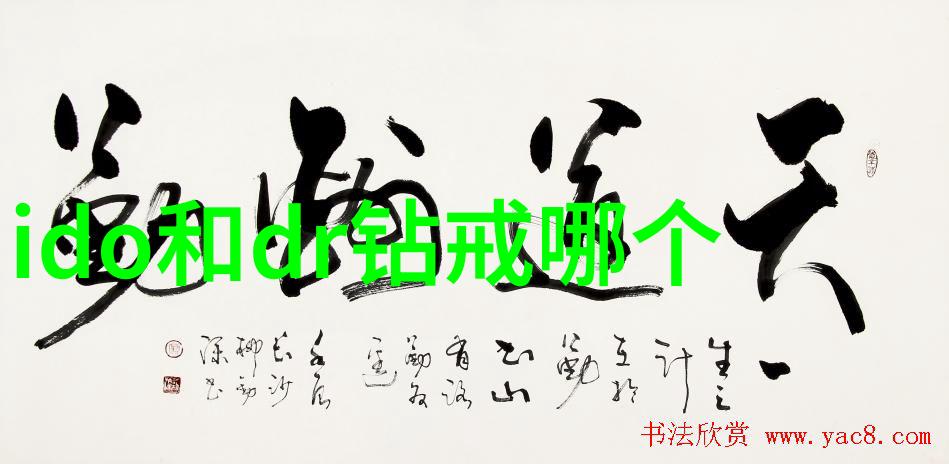 天道酬勤
ido和dr钻戒哪个
一
生之
计
在于
勤
书山
有路
勤为
径
长沙
书法欣赏 www.yac8.com